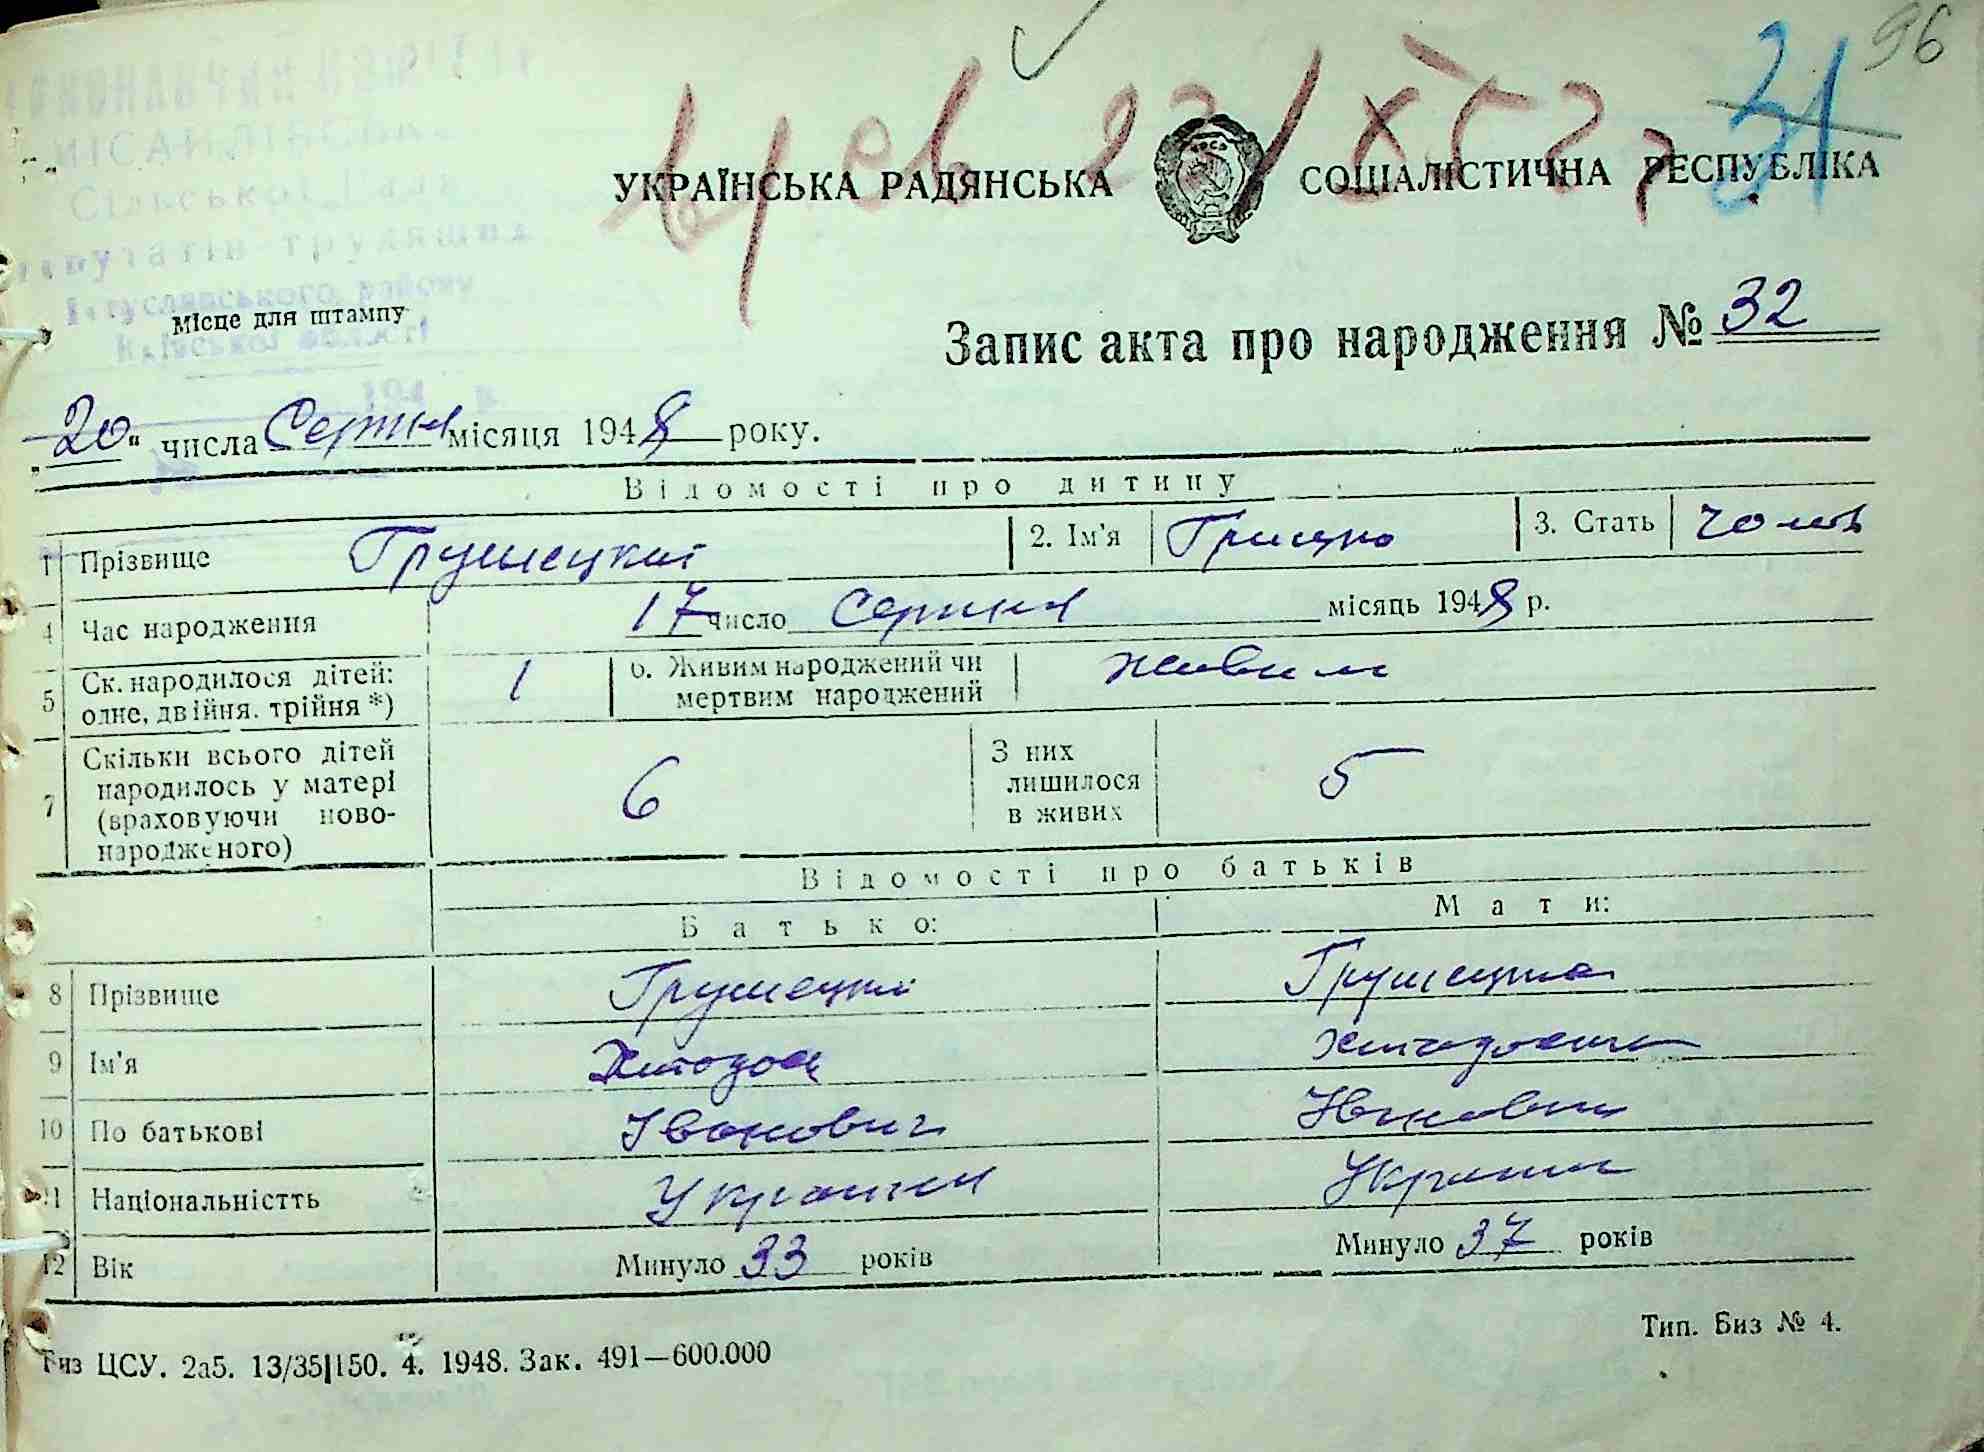 96
31
УКРАЇНСЬКА РАДЯНСЬКА СОЦІАЛІСТИЧНА РЕСПУБЛІКА
Сільської Ради
депутатів трудящих
Богуславського району
Місце для штампу
Київської області
194 р.
Запис акта про народження № 32
„20" числа Серпня місяця 1948 року.
Відомості про дитину
1 Прізвище Грушецкий 2. Ім'я Грицко 3. Стать чолов
4 Час народження 17 число Серпня місяць 1948 р.
5 Ск. народилося дітей: одне, двійня, трійня *) 1 6. Живим народжений чи мертвим народжений живим
7 Скільки всього дітей народилось у матері (враховуючи новонародженого) 6 З них лишилося в живих 5
Відомості про батьків
Батько: Мати:
8 Прізвище Грушецкий Грушецка
9 Ім'я
10 По батькові Іванович
11 Національністть Украинец Украин
12 Вік Минуло 33 років Минуло 37 років
Биз ЦСУ. 2а5. 13/35|150. 4. 1948. Зак. 491—600.000
Тип. Биз № 4.